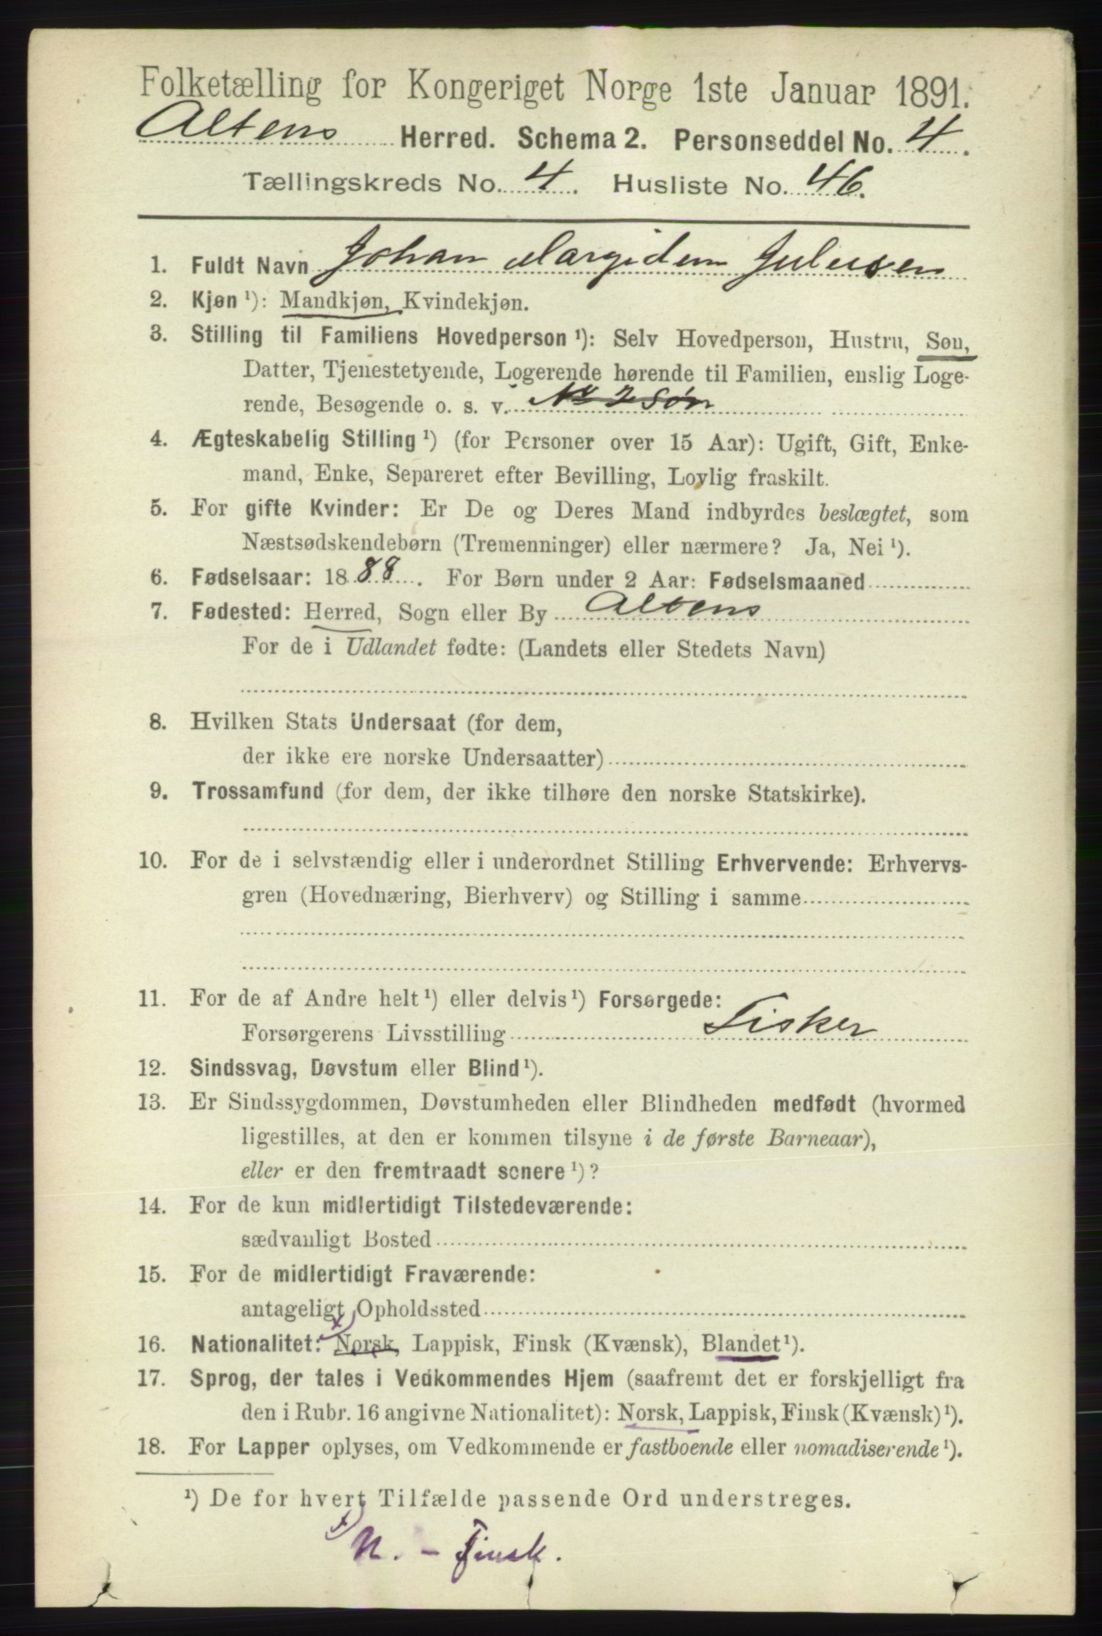 Folketælling for Kongeriget Norge 1ste Januar 1891.
Altens Herred. Schema 2. Personseddel No. 4.
Tællingskreds No. 4. Husliste No. 46.
1. Fuldt Navn Johan Julusen
2. Kjøn ¹): Mandkjøn, Kvindekjøn.
3. Stilling til Familiens Hovedperson ¹): Selv Hovedperson, Hustru, Søn,
Datter, Tjenestetyende, Logerende hørende til Familien, enslig Loge-
rende, Besøgende o. s. v. No 2 Søn
4. Ægteskabelig Stilling ¹) (for Personer over 15 Aar): Ugift, Gift, Enke-
mand, Enke, Separeret efter Bevilling, Lovlig fraskilt.
5. For gifte Kvinder: Er De og Deres Mand indbyrdes beslægtet, som
Næstsødskendebørn (Tremenninger) eller nærmere? Ja, Nei ¹).
6. Fødselsaar: 1888. For Børn under 2 Aar: Fødselsmaaned
7. Fødested: Herred, Sogn eller By Altens
For de i Udlandet fødte: (Landets eller Stedets Navn)
8. Hvilken Stats Undersaat (for dem,
der ikke ere norske Undersaatter)
9. Trossamfund (for dem, der ikke tilhøre den norske Statskirke).
10. For de i selvstændig eller i underordnet Stilling Erhvervende: Erhvervs-
gren (Hovednæring, Bierhverv) og Stilling i samme
11. For de af Andre helt ¹) eller delvis ¹) Forsørgede:
Forsørgerens Livsstilling Fisker
12. Sindssvag, Døvstum eller Blind ¹).
13. Er Sindssygdommen, Døvstumheden eller Blindheden medfødt (hvormed
ligestilles, at den er kommen tilsyne i de første Barneaar),
eller er den fremtraadt senere ¹)?
14. For de kun midlertidigt Tilstedeværende:
sædvanligt Bosted
15. For de midlertidigt Fraværende:
antageligt Opholdssted
16. Nationalitet: x) Norsk, Lappisk, Finsk (Kvænsk), Blandet ¹).
17. Sprog, der tales i Vedkommendes Hjem (saafremt det er forskjelligt fra
den i Rubr. 16 angivne Nationalitet): Norsk, Lappisk, Finsk (Kvænsk) ¹).
18. For Lapper oplyses, om Vedkommende er fastboende eller nomadiserende ¹).
¹) De for hvert Tilfælde passende Ord understreges.
x) N. - Finsk.